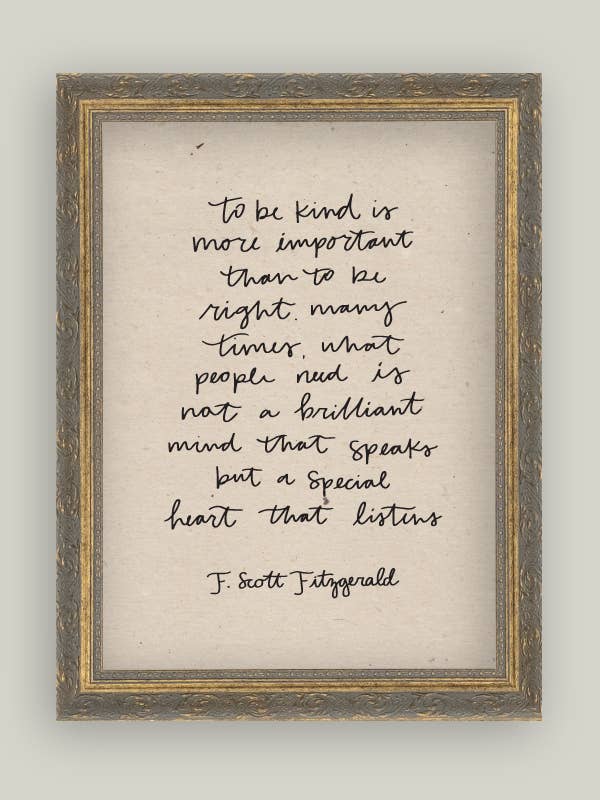 to be kind is
more important
than to be
right. many
times, what
people need is
not a brilliant
mind that speaks
but a special
heart that listens
F. Scott Fitzgerald